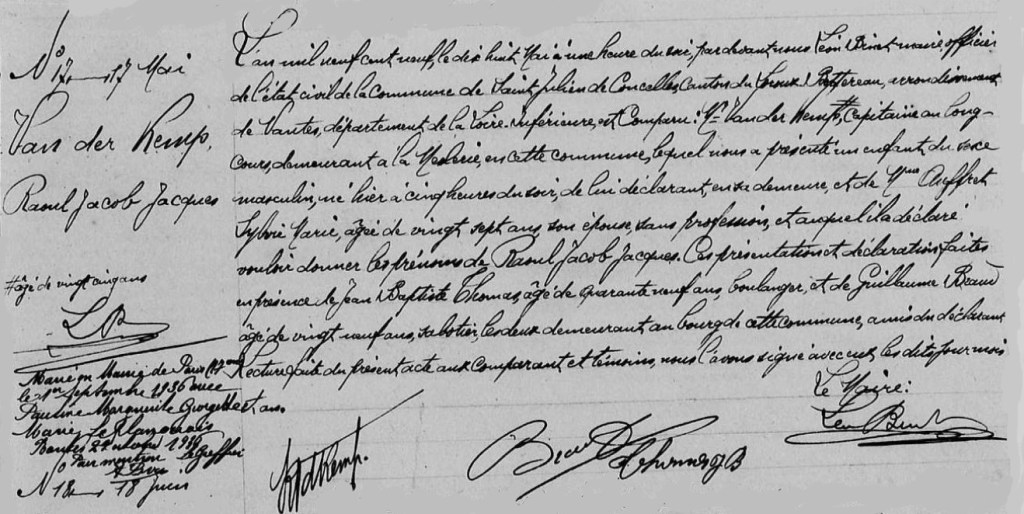 N° 17 — 17 Mai
Van der Kemp,
Raoul Jacob Jacques
# âgé de vingt cinq ans
L B
Marié en Mairie de Paris
le 1er Septembre 1936 avec
Pauline Marguerite Georgette
Marie
Nantes 22 1949
Pour mention Le Greffier
N° 18 — 18 Juin
L'an mil neuf cent neuf, le dix huit Mai à une heure du soir, par devant nous Léon Binet maire officier
de l'état civil de la commune de Saint Julien de Concelles, Canton du Loroux Bottereau, arrondissement
de Nantes, département de la Loire-Inférieure, est Comparu : Mr Van der Kemp, # Capitaine au long-
cours, demeurant à la Meslerie, en cette commune, lequel nous a présenté un enfant du sexe
masculin, né hier à cinq heures du soir, de lui déclarant, en sa demeure, et de Auffret
Sylvie Marie, âgée de vingt sept ans, son épouse, sans profession, et auquel il a déclaré
vouloir donner les prénoms de Raoul Jacob Jacques. Ces présentation et déclaration faites
en présence de Jean Baptiste Thomas, âgé de quarante neuf ans, boulanger, et de Guillaume
âgé de vingt neuf ans, sabotier, les deux demeurant au bourg de cette commune, amis du déclarant
Lecture faite du présent acte aux comparant et témoins, nous l'avons signé avec eux les dits jour mois
et an.
Le Maire:
Thomas JB